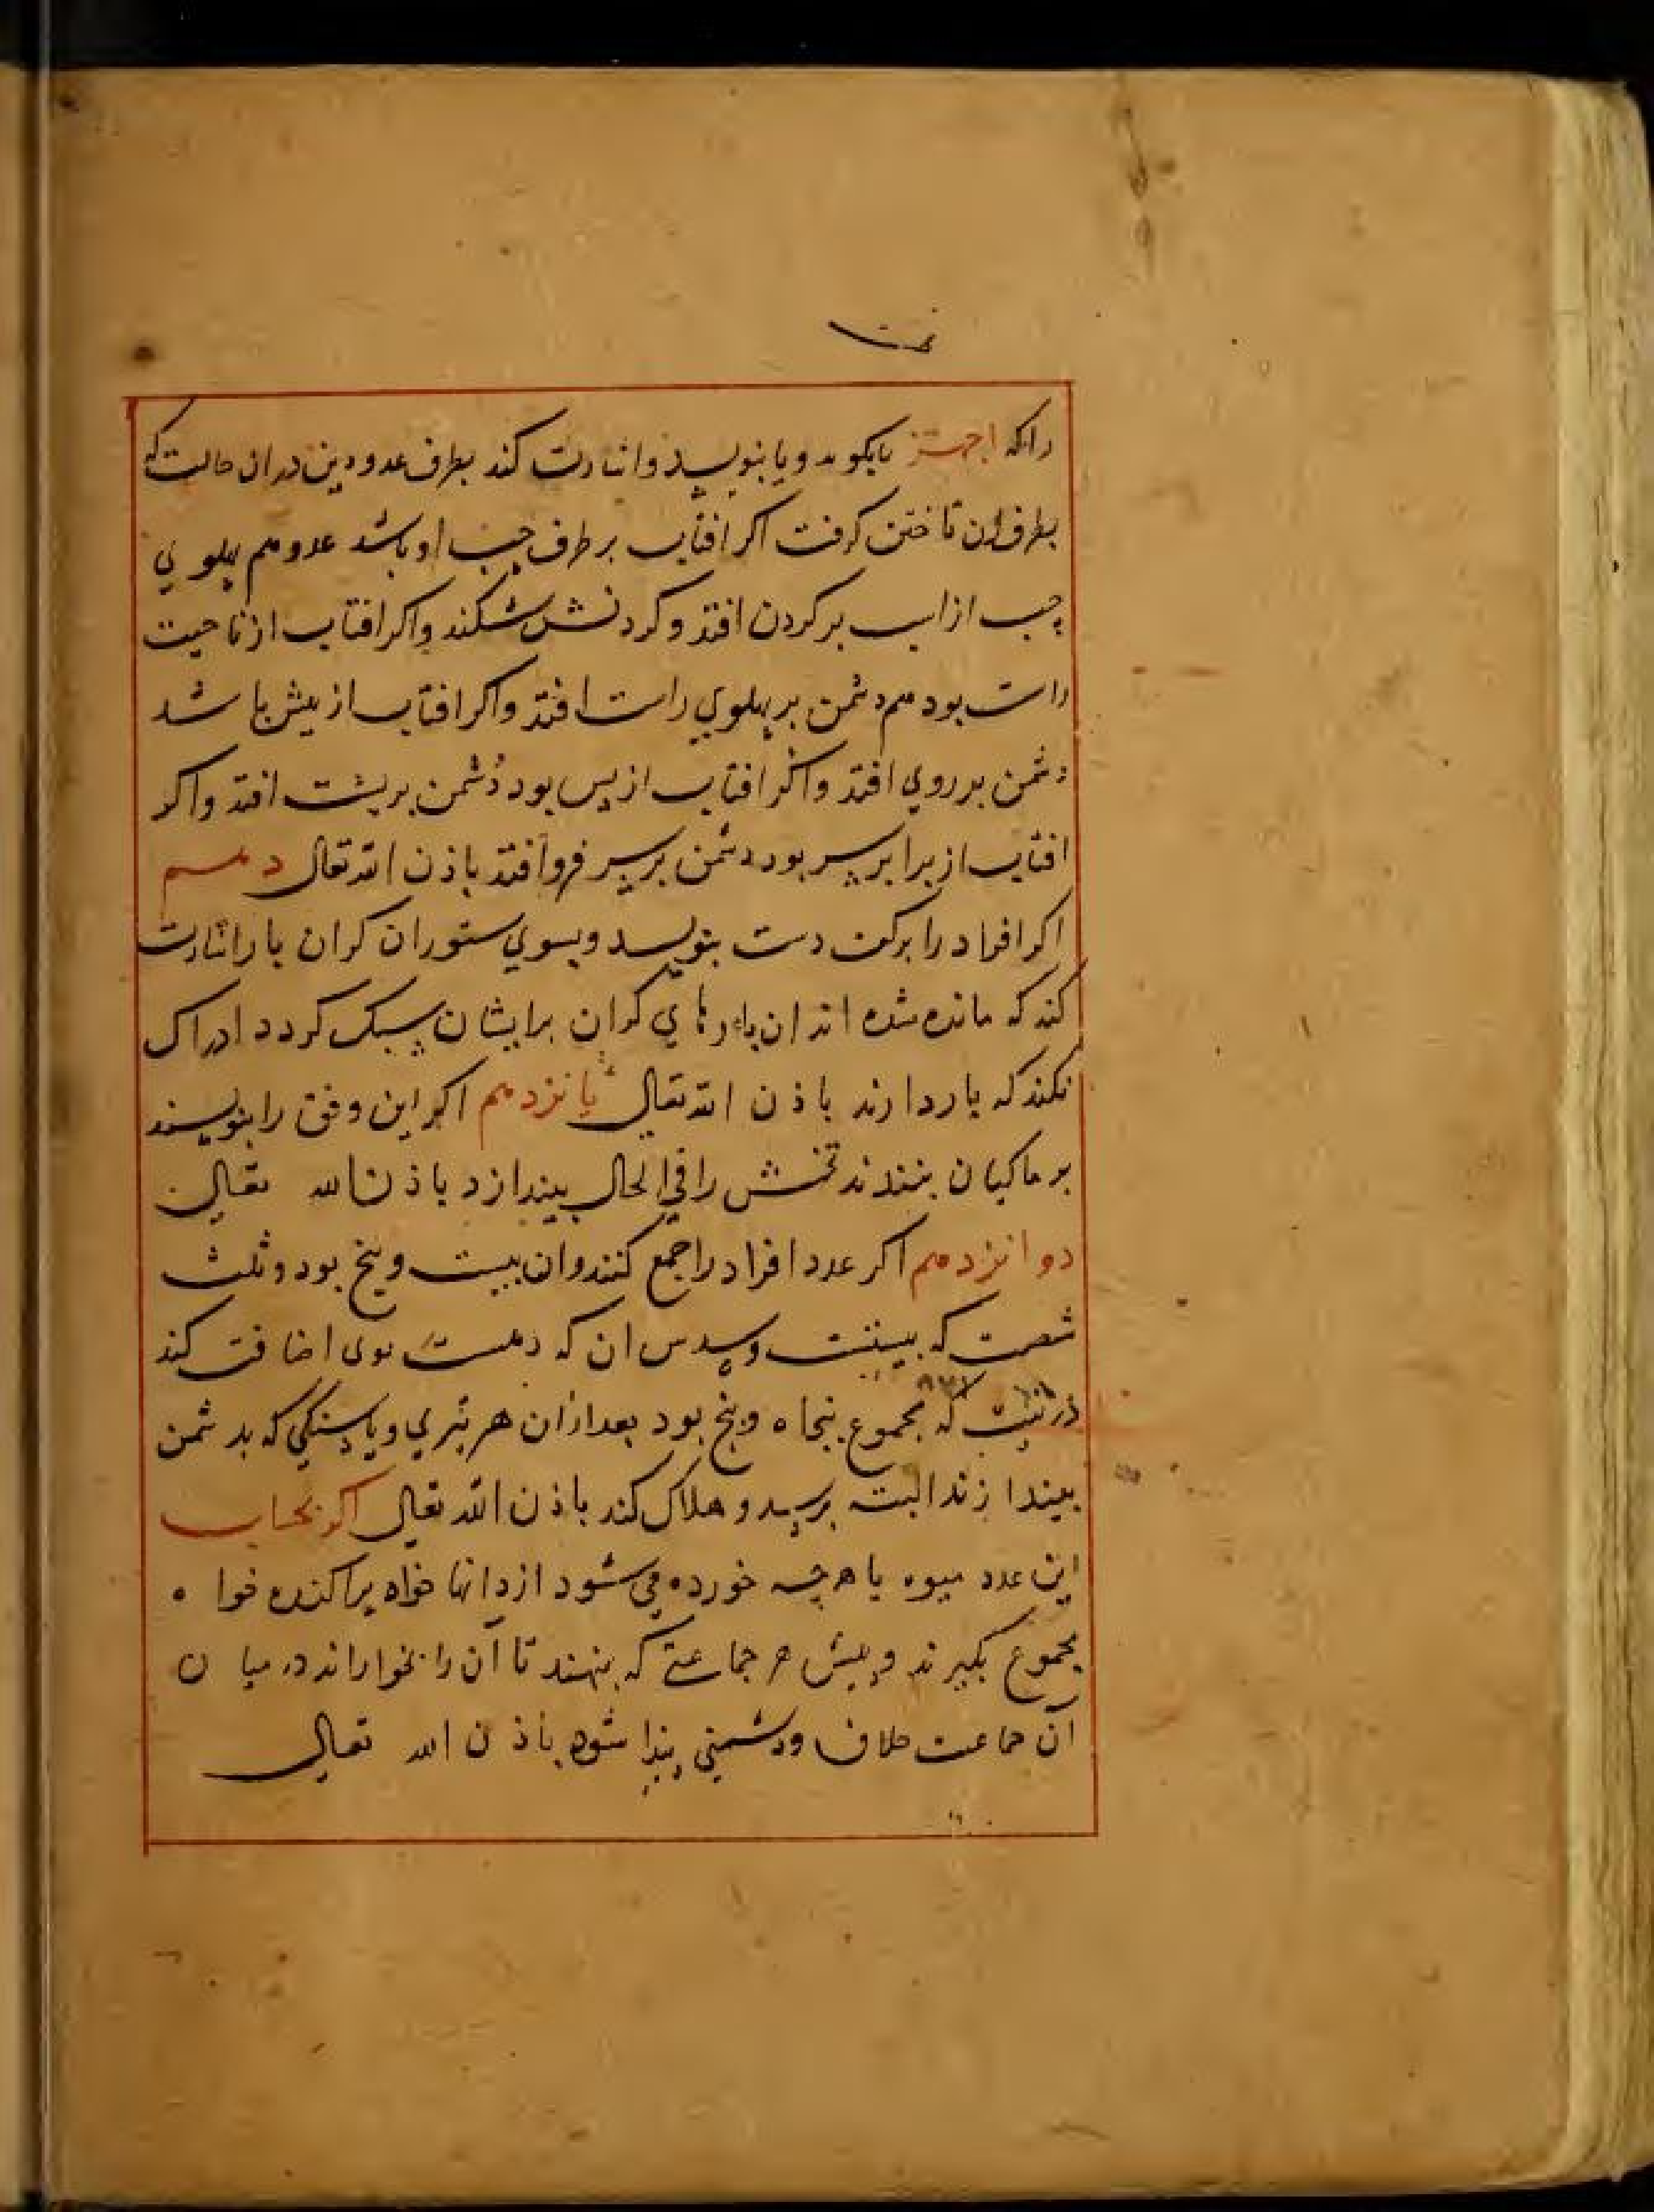 تمت
راکه اجهتز بابکوید ویا بنویسد واشارت کند بطرف عدو دین دران حالت که
بطرف ان تاختن کرفت اکر افتاب بر طرف چپ او باشد عدو هم پهلوي
چپ از اسب بر کردن افتد وکردنش شکند واکر افتاب از ناحیت
راست بود هم دشمن بر پهلوي راست افتد واکر افتاب از پیش باشد
دشمن بر روي افتد واکر افتاب از پس بود دشمن بر پشت افتد واکر
افتاب از برابر سر بود دشمن بر سر فرو افتد باذن الله تعالی دهم
اکر افراد را بر کف دست بنویسد وبسوي ستوران کران بار اشارت
کند که مانده شده اند ان بارهاي کران بر ایشان سبک کردد ادراک
نکند که بار دارند باذن الله تعالی یانزدهم اکر این وفق را بنویسند
بر ماکیان بندند تخمش را في الحال بیندازد باذن الله تعالی
دوانزدهم اکر عدد افراد را جمع کنند وان بیست وپنج بود وثلث
شصت که بیستست وسدس ان که دهست بوی اضافت کند
که مجموع پنجاه وپنج بود بعد ازان هر تیري ویا سنکی که بدشمن
بیندازند البته برسد وهلاک کند باذن الله تعالی اکر بحساب
این عدد میوه یا هرچه خورده می شود از دانها خواه پراکنده خواه
مجموع بکیرند وپیش هر جماعتی که بنهند تا آن را بخوراند درمیان
آن جماعت خلاف ودشمنی پیدا شود باذن الله تعالی